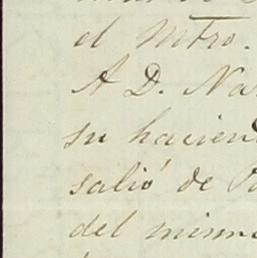 el Mtro.
A D. Na
su hacien
salió de
del mismo